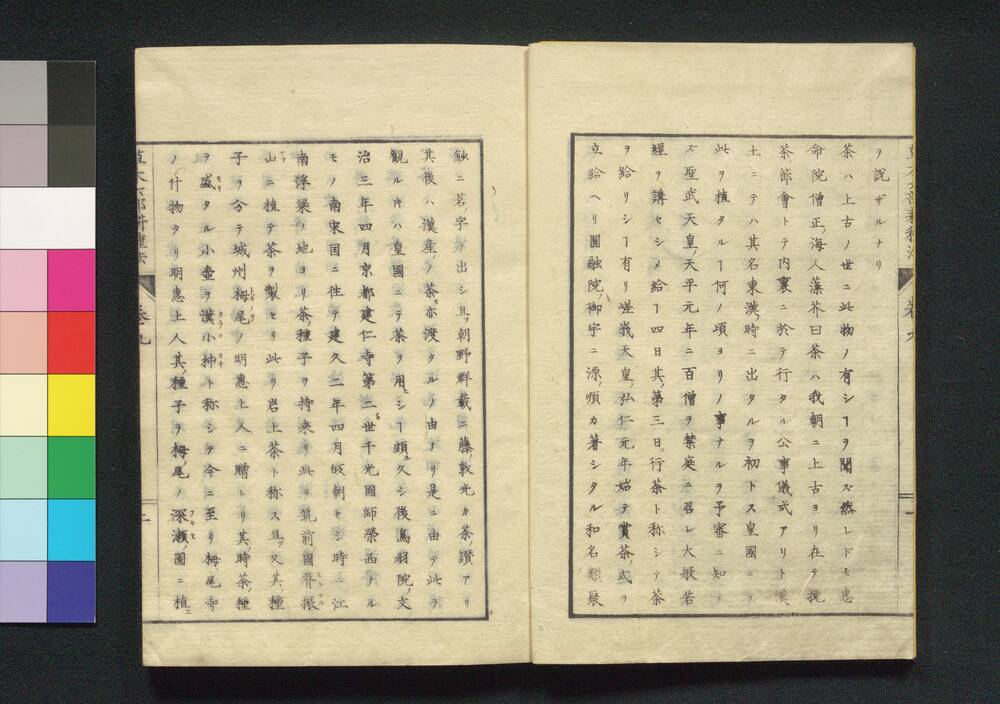 ヲ説ザルナリ
茶ハ上古ノ世ニ此物ノ有シヿヲ聞ズ然レドモ惠
命院僧正ノ海人藻芥曰茶ハ我朝ニ上古ヨリ在テ挽
茶ノ節會トテ内裏ニ於テ行タル公事儀式アリト漢
土ニテハ其名東漢ノ時ニ出タルヲ初トス皇國ニテ
此ヲ植タルヿ何ノ頃ヨリノ事ナルヲ予審ニ知ラ
ズ聖武天皇ノ天平元年ニ百僧ヲ禁庭ニ召レ大般若
經ヲ講セシメ給フヿ四日其ノ第三日行茶ト称シテ茶
ヲ給リシヿ有リ嵯峩天皇ノ弘仁元年始テ賞茶ノ式ヲ
立給ヘリ圓融院ノ御宇ニ源ノ順カ著シタル和名類聚
鈔ニ茗字ヲ出シ且ツ朝野群載ニ藤ノ敦光カ茶讃アリ
其後ハ漢産ノ茶モ亦渡タルノ由ナリ是ニ由テ此ヲ
観ル片ハ皇國ニテ茶ヲ用ヒシヿ頗ル久シ後鳥羽院ノ文
治三年四月京都建仁寺第二世千光國師榮西ナル
モノ南宋国ニ往テ建久二年四月皈朝セシ時ニ江
南浮梁ノ地ヨリ茶ノ種子ヲ持来リ此ヲ筑前國脊振
山ニ植テ茶ヲ製セリ此ヲ岩上茶ト称ス且ツ又其ノ種
子ヲ分テ城州栂尾ノ明惠上人ニ贈レリ其時茶ノ種
ヲ盛タル小壷ヲ漢小柿ト称シテ今ニ至リ栂尾寺
ノ什物タリ明惠上人其ノ種子ヲ栂ノ尾ノ深瀬ノ園ニ植
草木六部耕種法 巻十九